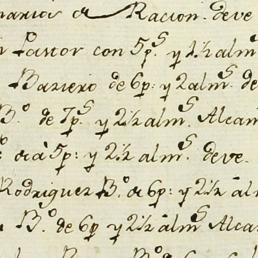 narios de Racion. deve
Pastor con 5p.s y 2½ alm.s
Baziero de 6p: y 2alm.s de
B.o de 7p.s y 2½ alm.s Alcan
à 5p: y 2½ alm.s deve.
Rodriguez B.o à 6p: y 2½ al
B.o de 6p y 2½ alm.s Alcan